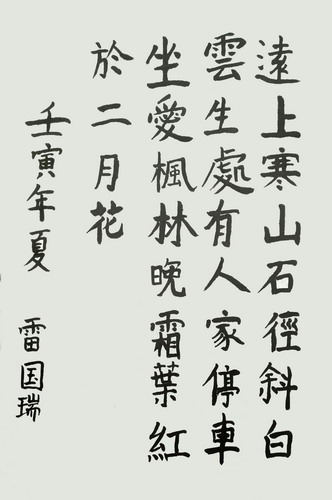 遠上寒山石徑斜白
雲生處有人家停車
坐愛楓林晚霜葉紅
於二月花
壬寅年夏 雷国瑞